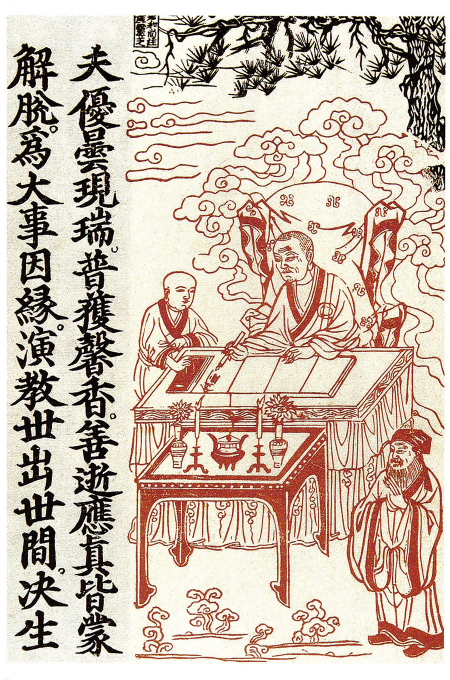 夫優曇現瑞。普獲馨香。善逝應眞皆蒙
解脫。爲大事因緣。演教世出世間。决生